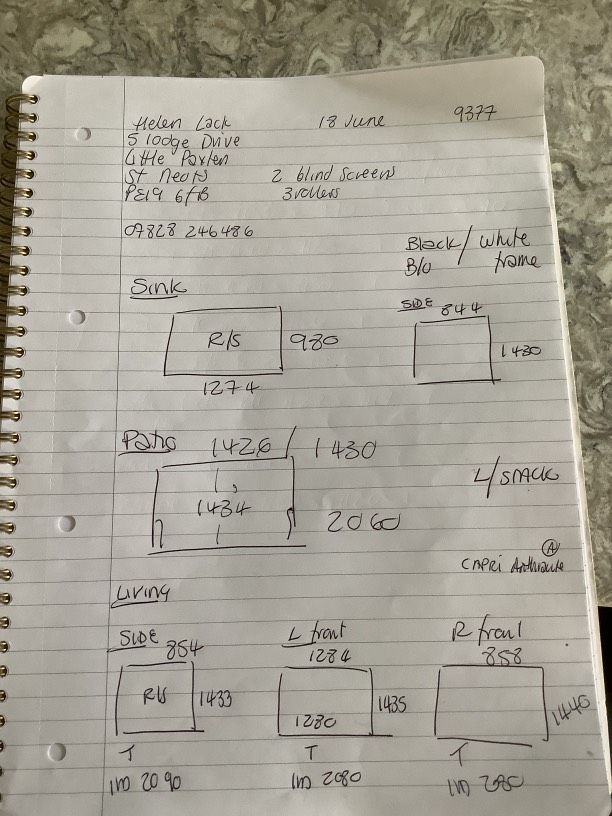 Helen Lack 18 June 9377
5 lodge Drive
Little Paxten
St Neots 2 blind screens
PE19 6FB 3 rollers
07828 246486
Black / white
B/O frame
Sink
SIDE 844
R/S 980
1430
1274
Patio 1426 / 1430
1434
L/STACK
2060
A
CAPRI Anthracite
Living
SIDE 854
L front 1284
R front 858
R/S 1433
1280 1435
1440
T T T
IM 2090 IM 2080 IM 280